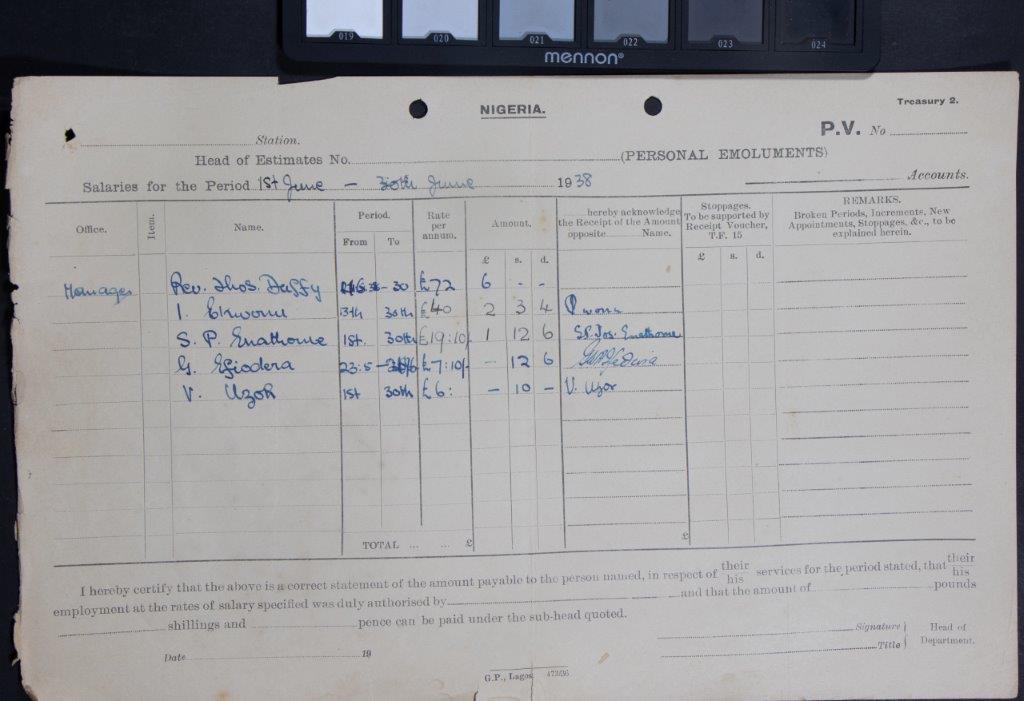 019 020 021 022 023 024
mennon®
NIGERIA.
Treasury 2.
P.V. No
Station.
Head of Estimates No. (PERSONAL EMOLUMENTS)
Salaries for the Period 1st June - 30th June 1938
Accounts.
Office. Item. Name. Period. From To Rate per annum. Amount. hereby acknowledge the Receipt of the Amount opposite Name. Stoppages. To be supported by Receipt Voucher, T.F. 15 REMARKS. Broken Periods, Increments, New Appointments, Stoppages, &c., to be explained herein.
£ s. d. £ s. d.
Manager Rev. Thos. Duffy - 30 £72 6 - -
I. Ekwome 13th 30th £40 2 3 4
S. P. Enathome 1st. 30th £19:10/- 1 12 6 S.P. Jos. Enathome
G. Efiodera 23.5 - £7:10/- - 12 6
V. Uzoh 1st 30th £6: - 10 - V. Uzor
TOTAL ... ... £ £
I hereby certify that the above is a correct statement of the amount payable to the person named, in respect of their his services for the period stated, that their his
employment at the rates of salary specified was duly authorised by and that the amount of pounds
shillings and pence can be paid under the sub-head quoted.
Signature Head of
Title Department.
Date 19
G.P., Lagos